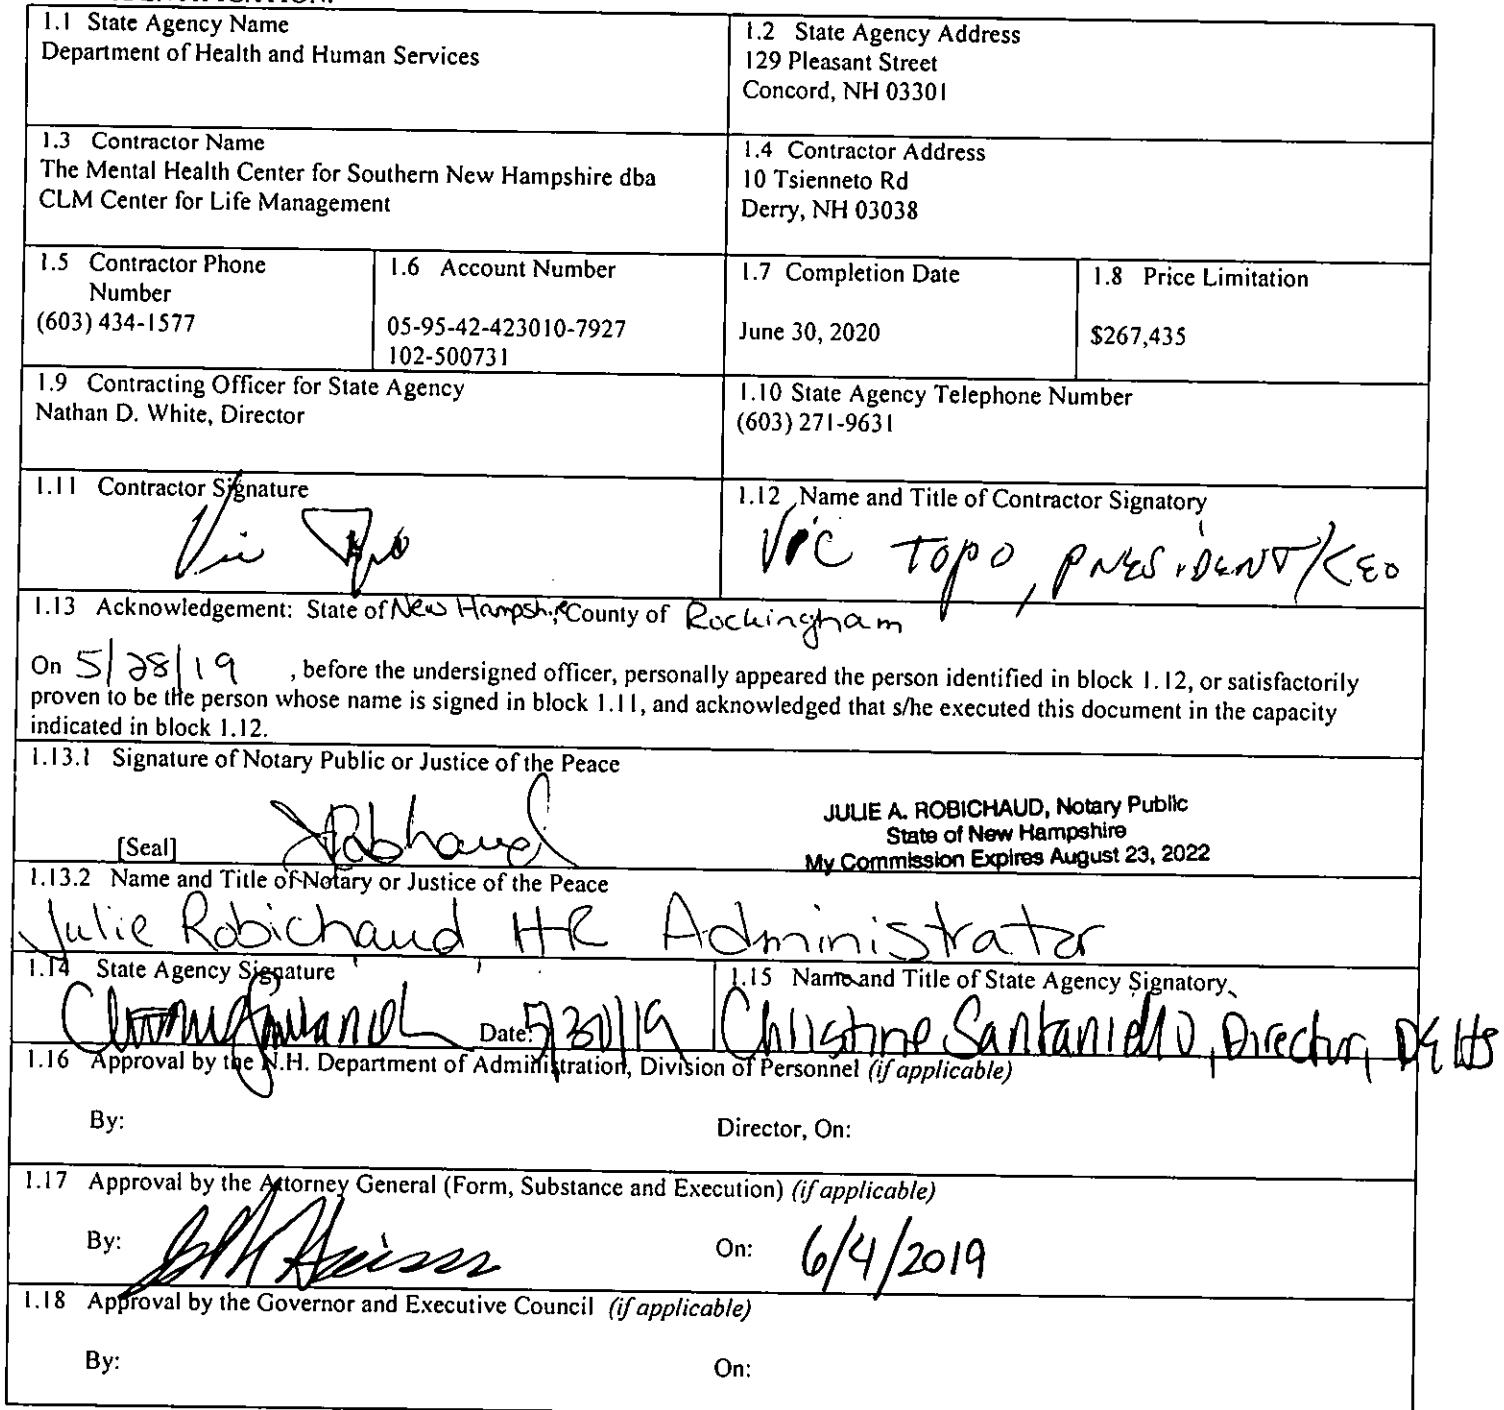 1.1 State Agency Name
Department of Health and Human Services
1.2 State Agency Address
129 Pleasant Street
Concord, NH 03301
1.3 Contractor Name
The Mental Health Center for Southern New Hampshire dba
CLM Center for Life Management
1.4 Contractor Address
10 Tsienneto Rd
Derry, NH 03038
1.5 Contractor Phone
Number
(603) 434-1577
1.6 Account Number
05-95-42-423010-7927
102-500731
1.7 Completion Date
June 30, 2020
1.8 Price Limitation
$267,435
1.9 Contracting Officer for State Agency
Nathan D. White, Director
1.10 State Agency Telephone Number
(603) 271-9631
1.11 Contractor Signature
Vic Topo
1.12 Name and Title of Contractor Signatory
Vic Topo, PRESIDENT/CEO
1.13 Acknowledgement: State of New Hampshire, County of Rockingham
On 5/28/19 , before the undersigned officer, personally appeared the person identified in block 1.12, or satisfactorily
proven to be the person whose name is signed in block 1.11, and acknowledged that s/he executed this document in the capacity
indicated in block 1.12.
1.13.1 Signature of Notary Public or Justice of the Peace
JULIE A. ROBICHAUD, Notary Public
State of New Hampshire
My Commission Expires August 23, 2022
[Seal]
1.13.2 Name and Title of Notary or Justice of the Peace
Julie Robichaud HR Administrator
1.14 State Agency Signature
Date: 5/30/19
1.15 Name and Title of State Agency Signatory
Christine Santaniello, Director,
1.16 Approval by the N.H. Department of Administration, Division of Personnel (if applicable)
By:
Director, On:
1.17 Approval by the Attorney General (Form, Substance and Execution) (if applicable)
By:
On: 6/4/2019
1.18 Approval by the Governor and Executive Council (if applicable)
By:
On: